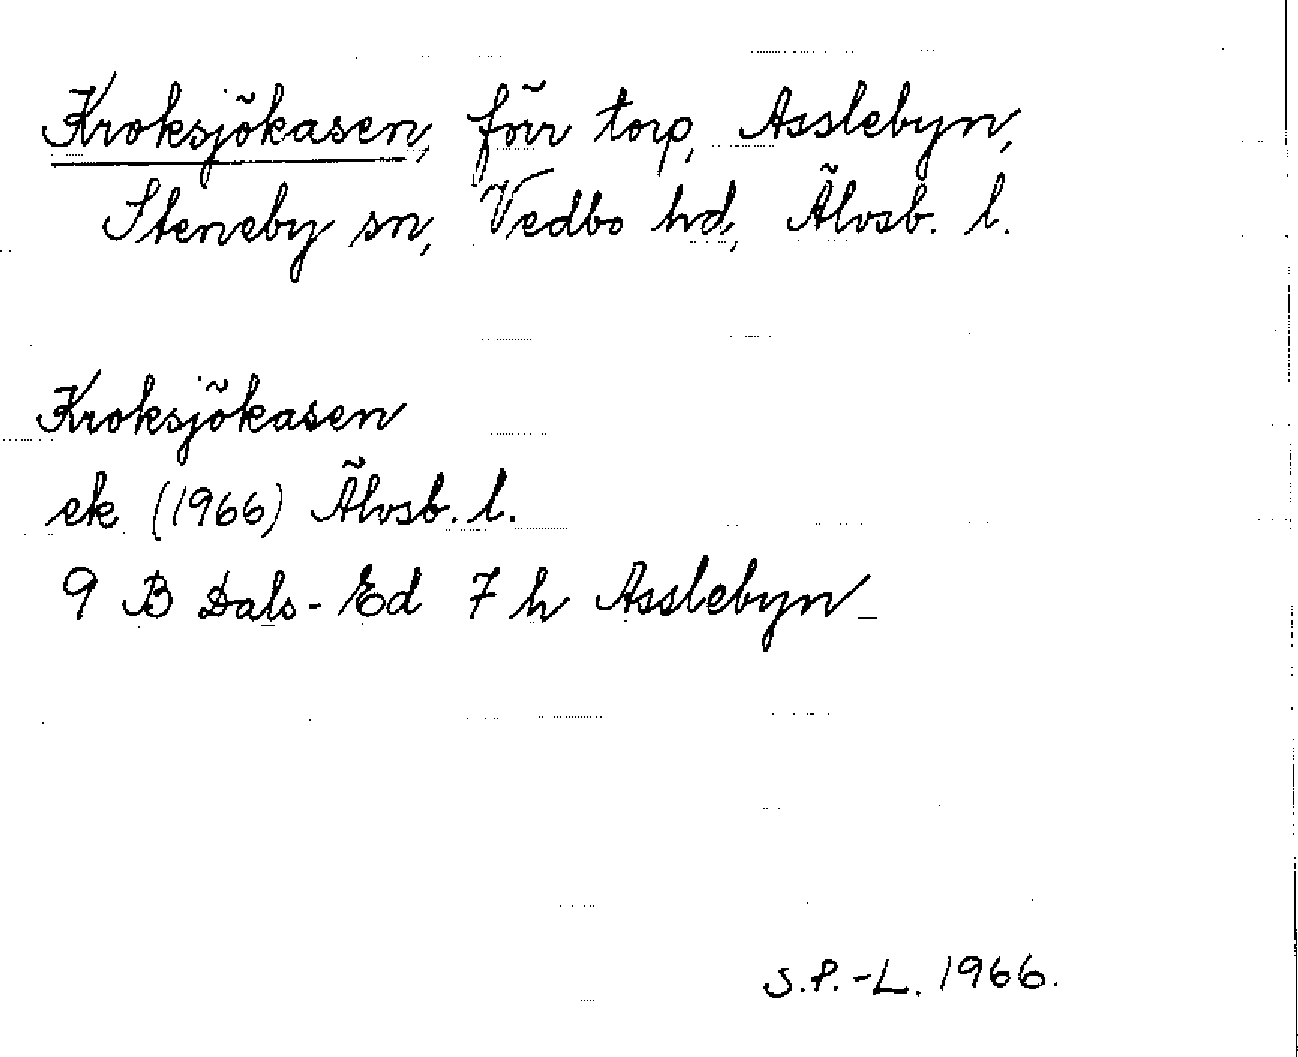 Kroksjökasen, förr torp, Asslebyn,
Steneby sn, Vedbo hd, Älvsb. l.
Kroksjökasen
ek (1966) Älvsb. l.
9 B Dals-Ed 7 h Asslebyn
S.P.-L. 1966.